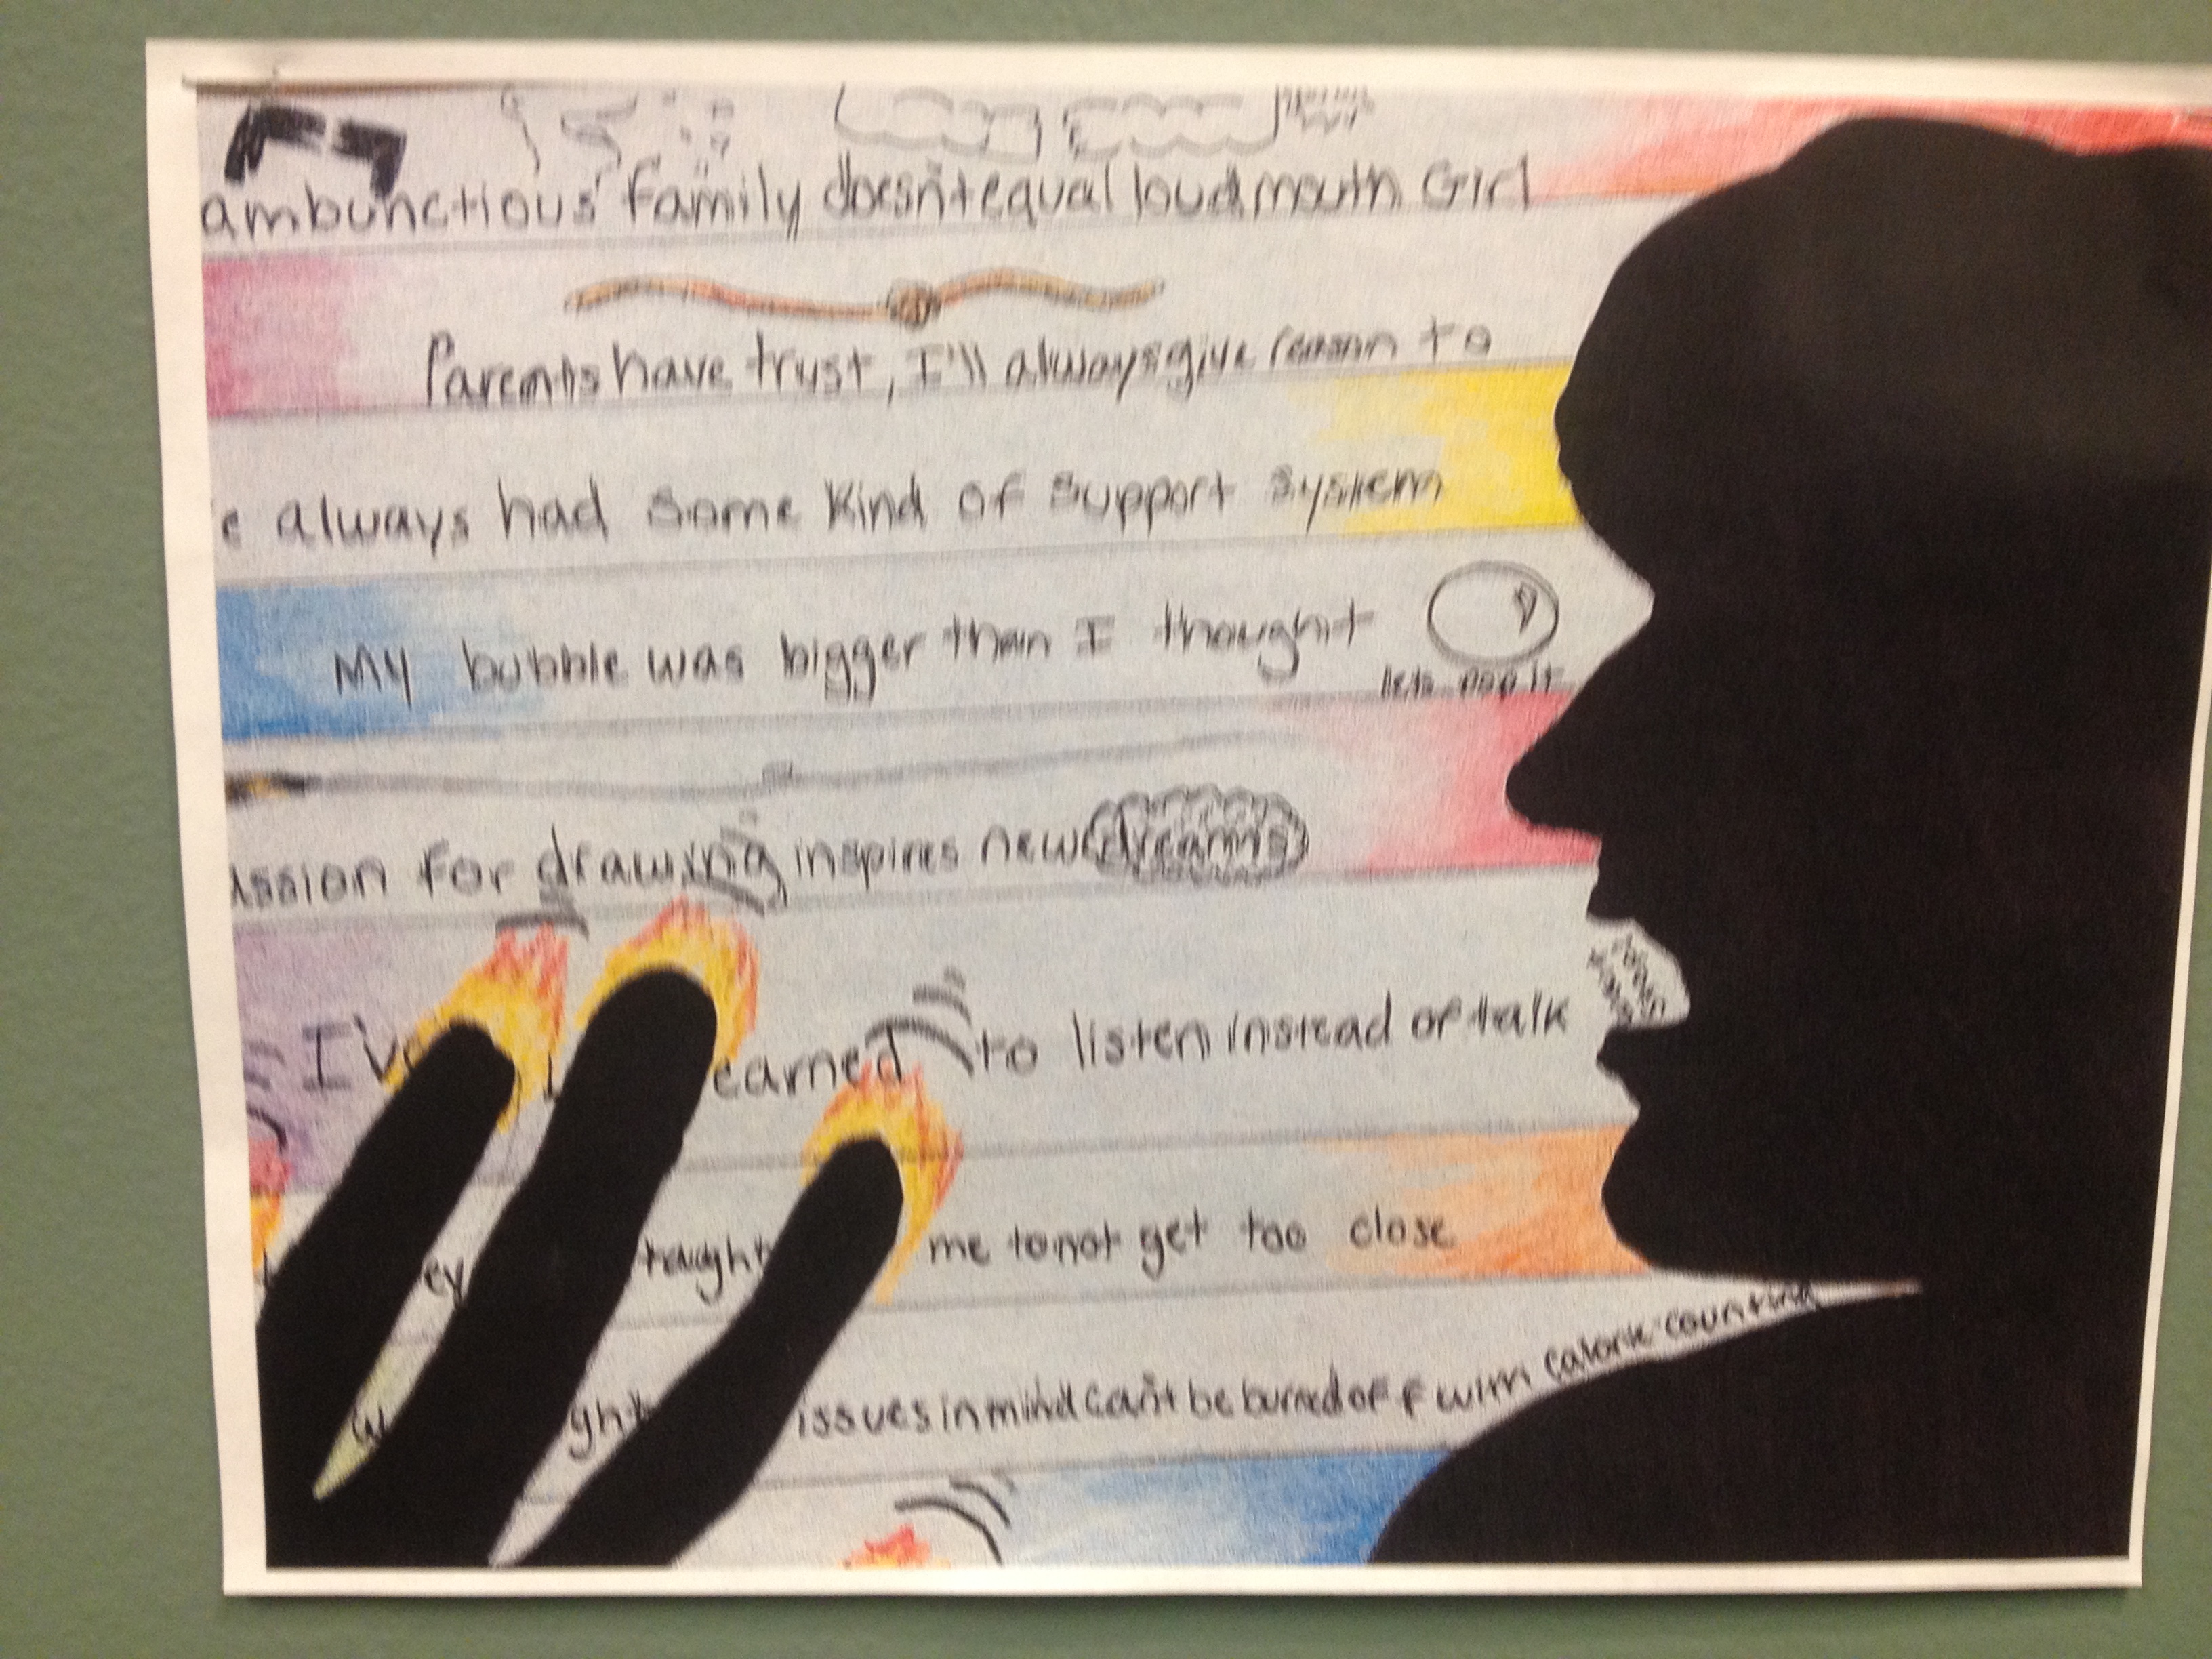 ambunctious family doesn't equal loud mouth Girl
Parents have trust, I'll always give reason to
e always had some kind of support system
My bubble was bigger than I thought
lets pop it
assion for drawing inspires new dreams
I've earned to listen instead of talk
ey taught me to not get too close
ght issues in mind can't be burned off with calorie counting